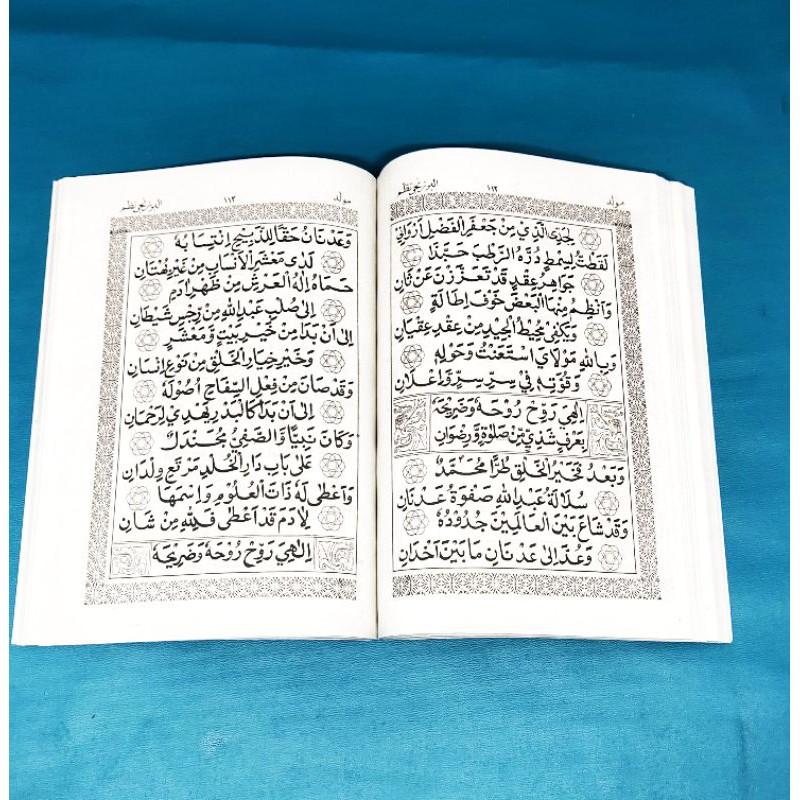 مولد ١١٢ البرزنجي نظم
لِجَدِّى الَّذِيْ مِنْ جَعْفَرِ الْفَضْلِ اَرْوَانِيْ
لَقَطْتُ لِسِمْطٍ دُرَّهُ الرَّطْبَ حَبَّذَا
جَوَاهِرُ عِقْدٍ قَدْ تَعَزَّزْنَ عَنْ ثَانِ
وَاَنْظِمُ مِنْهَا الْبَعْضَ خَوْفَ اِطَالَةٍ
وَيَكْفِيْ مُحِيْطُ الْجِيْدِ مِنْ عِقْدِ عِقْيَانِ
وَبِاللهِ مَوْلَايَ اسْتَعَنْتُ وَحَوْلِهٖ
وَقُوَّتِهٖ فِيْ سِرِّ سِرِّيْ وَاِعْلَانِ
اِلٰهِيْ رَوِّحْ رُوْحَهٗ وَضَرِيْحَهٗ
بِعَرْفٍ شَذِيٍّ مِّنْ صَلٰوةٍ وَّرِضْوَانِ
وَبَعْدُ فَخَيْرُ الْخَلْقِ طُرًّا مُحَمَّدٌ
سُلَالَةُ عَبْدِ اللهِ صَفْوَةُ عَدْنَانِ
وَقَدْ شَاعَ بَيْنَ الْعَالَمِيْنَ جُدُوْدُهٗ
وَعُدَّ اِلٰى عَدْنَانِ مَا بَيْنَ اَخْدَانِ
مولد ١١٣ البرزنجي نظم
وَعَدْنَانُ حَقًّا لِلذَّبِيْحِ اِنْتِسَابُهٗ
لَدٰى مَعْشَرِ الْاَنْسَابِ مِنْ غَيْرِ بُهْتَانِ
حَمَاهُ اِلٰهُ الْعَرْشِ مِنْ ظَهْرِ اٰدَمٍ
اِلٰى صُلْبِ عَبْدِ اللهِ مِنْ رِجْسِ شَيْطَانِ
اِلٰى اَنْ بَدَا مِنْ خَيْرِ بَيْتٍ وَّمَعْشَرٍ
وَخَيْرِ خِيَارِ الْخَلْقِ مِنْ نَوْعِ اِنْسَانِ
وَقَدْ صَانَ مِنْ فِعْلِ السِّفَاحِ اُصُوْلَهٗ
اِلٰى اَنْ بَدَا كَالْبَدْرِ يَهْدِيْ لِرَحْمَانِ
وَكَانَ نَبِيًّا وَّالصَّفِيُّ مُجَنْدَلٌ
عَلٰى بَابِ دَارِ الْخُلْدِ مَرْتَعِ وِلْدَانِ
وَاَعْطٰى لَهٗ ذَاتَ الْعُلُوْمِ وَاِسْمَهَا
لِاٰدَمَ قَدْ اَعْطٰى فَلِلّٰهِ مِنْ شَانِ
اِلٰهِيْ رَوِّحْ رُوْحَهٗ وَضَرِيْحَهٗ